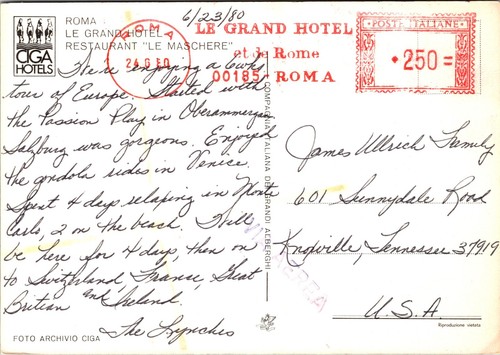 ROMA
LE GRAND HOTEL
RESTAURANT "LE MASCHERE"
CIGA
HOTELS
6/23/80
ROMA
24.6.80
LE GRAND HOTEL
et de Rome
00185 - ROMA
POSTE ITALIANE
250
We're enjoying a 6 wks
tour of Europe. Started with
the Passion Play in Oberammergau
Salzburg was gorgeous. Enjoyed
the gondola rides in Venice.
Spent 4 days relaxing in Monte
Carlo, 2 on the beach. Will
be here for 4 days, then on
to Switzerland, France, Great
Britian and Ireland.
The Lynches
COMPAGNIA ITALIANA DEI GRANDI ALBERGHI
James Ullrich Family
601 Sunnydale Road
Knoxville, Tennessee 37919
U.S.A.
FOTO ARCHIVIO CIGA
Riproduzione vietata